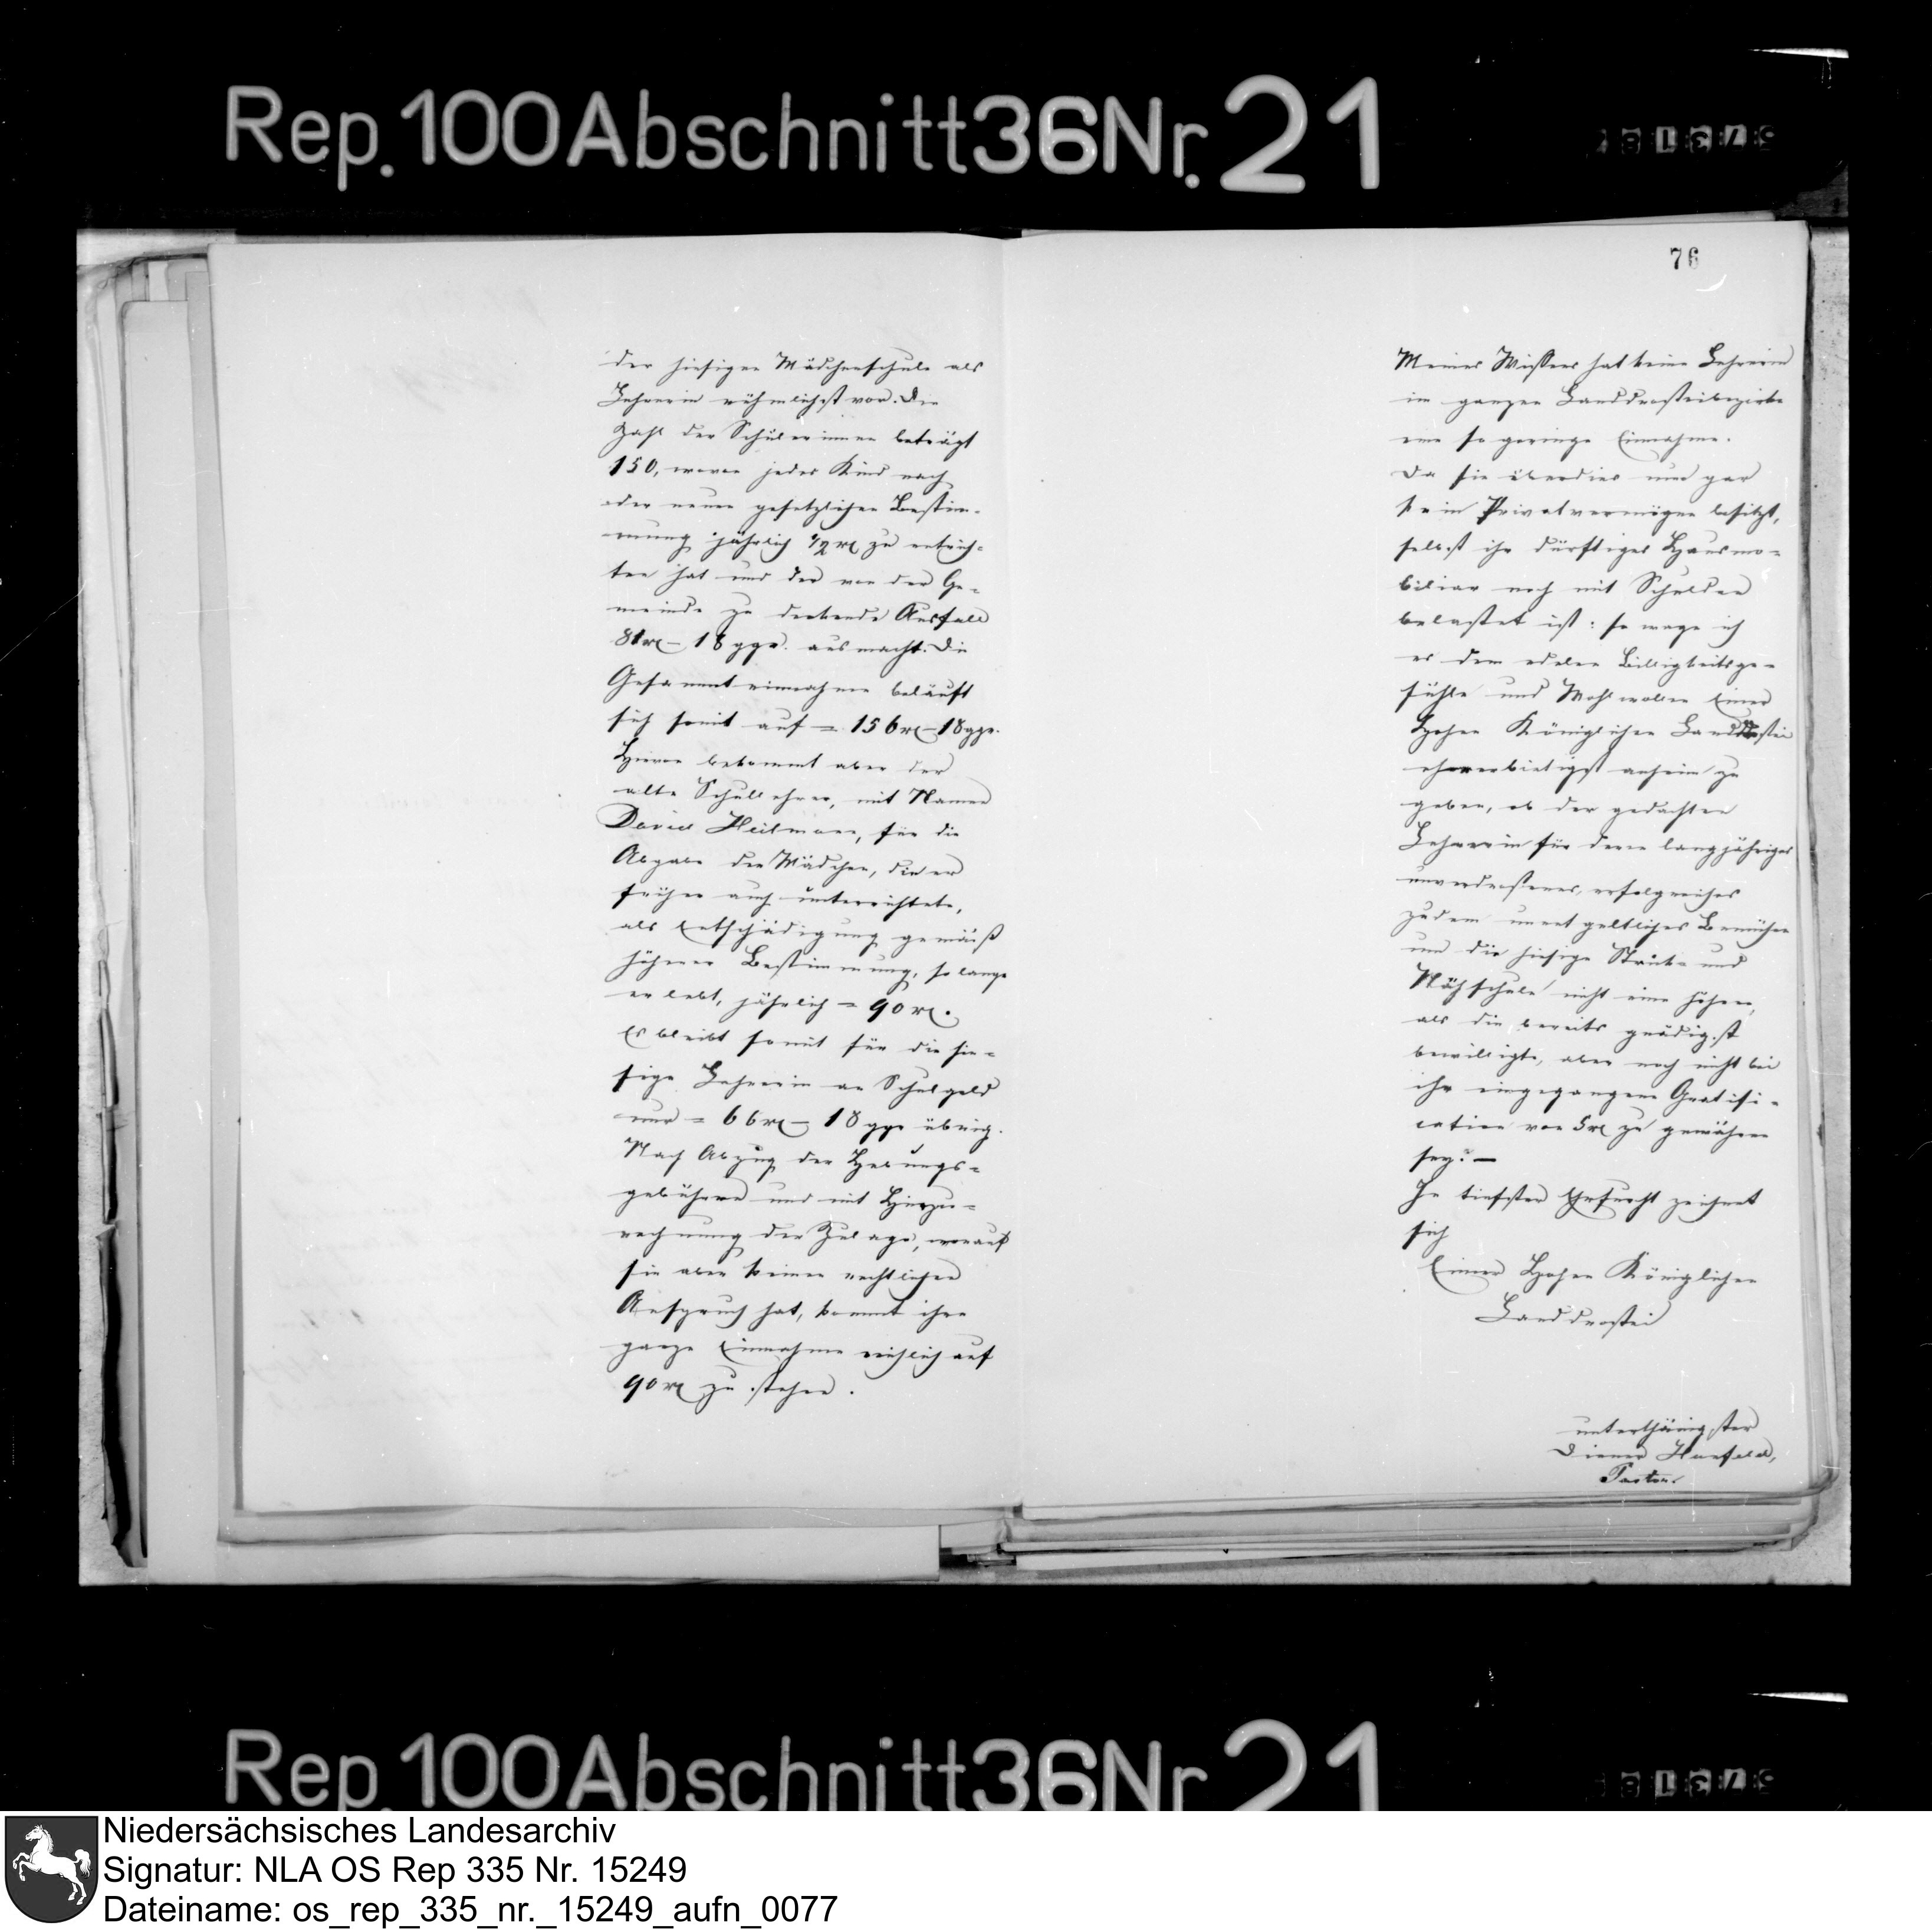 Rep. 100 Abschnitt 36 Nr. 21
76
der hiesigen Mädchenschule als
Lehrerin rühmlichst vor. Die
Zahl der Schülerinnen beträgt
150, wovon jedes Kind nach
der neuen gesetzlichen Bestim-
mung jährlich 1/2 rℓ zu entrich-
ten hat und der von der Ge-
meinde zu deckende Ausfall
81 rℓ – 18 ggr. ausmacht. Die
Gesammteinnahme beläuft
sich somit auf = 156 rℓ – 18 ggr.
Hievon bekommt aber der
alte Schullehrer, mit Namen
David Heilmann, für die
Abgabe der Mädchen, die er
früher auch unterrichtete,
als Entschädigung gemäß
höherer Bestimmung, so lange
er lebt, jährlich = 90 rℓ.
Es bleibt somit für die hie-
sige Lehrerin an Schulgeld
nur = 66 rℓ – 18 ggr übrig.
Nach Abzug der Hebungs-
gebühren und mit Hinzu-
rechnung der Zulage, worauf
sie aber keinen rechtlichen
Anspruch hat, kommt ihre
ganze Einnahme reichlich auf
90 rℓ zu stehen.
Meines Wissens hat keine Lehrerin
im ganzen Landdrosteibezirke
eine so geringe Einnahme.
Da sie überdies nun gar
kein Privatvermögen besitzt,
selbst ihr dürftiges Hausmo-
biliar noch mit Schulden
belastet ist: so wage ich
es dem edelen Billigkeitsge-
fühle und Wohlwollen Einer
Hohen Königlichen Landdrostei
ehrerbietigst anheim zu
geben, ob der gedachten
Lehrerin für deren langjähriges
unverdrossenes, erfolgreiches
zudem unentgeltliches Bemühen
um die hiesige Strick- und
Nähschule nicht eine höhere,
als die bereits gnädigst
bewilligte, aber noch nicht bei
ihr eingegangene Gratifi-
cation von 5 rℓ zu gewähren
sey. –
In tiefster Ehrfurcht zeichnet
sich
Einer Hohen Königlichen
Landdrostei
unterthänigster
Diener
Pastor.
Rep. 100 Abschnitt 36 Nr. 21
Niedersächsisches Landesarchiv
Signatur: NLA OS Rep 335 Nr. 15249
Dateiname: os_rep_335_nr._15249_aufn_0077